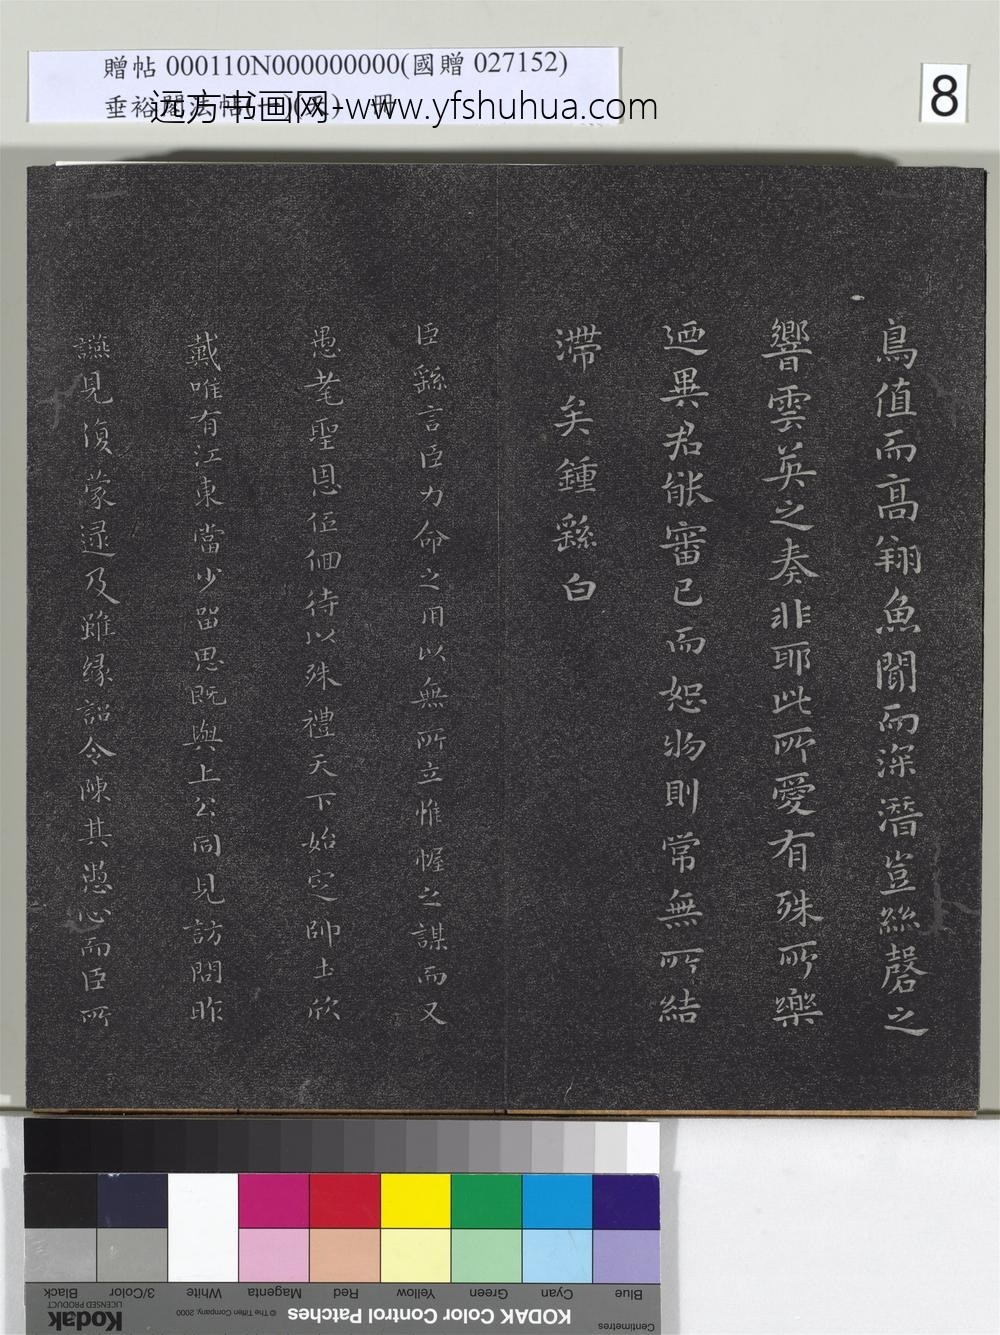 贈帖 000110N000000000(國贈 027152)
垂裕閣法帖 冊
远方书画网-www.yfshuhua.com
8
鳥值而高翔魚聞而深潛豈絲磬之
響雲英之奏非耶此所愛有殊所樂
迺異君能審已而恕物則常無所結
滯矣鍾繇白
臣繇言臣力命之用以無所立惟幄之謀而又
愚耄聖恩伍佪待以殊禮天下始定帥土欣
戴唯有江東當少留思既與上公同見訪問昨
讌見復蒙逮及雖緣詔令陳其愚心而臣所
Kodak
LICENSED PRODUCT
KODAK Color Control Patches
© The Tiffen Company, 2000
Centimetres
Blue
Cyan
Green
Yellow
Red
Magenta
White
3/Color
Black